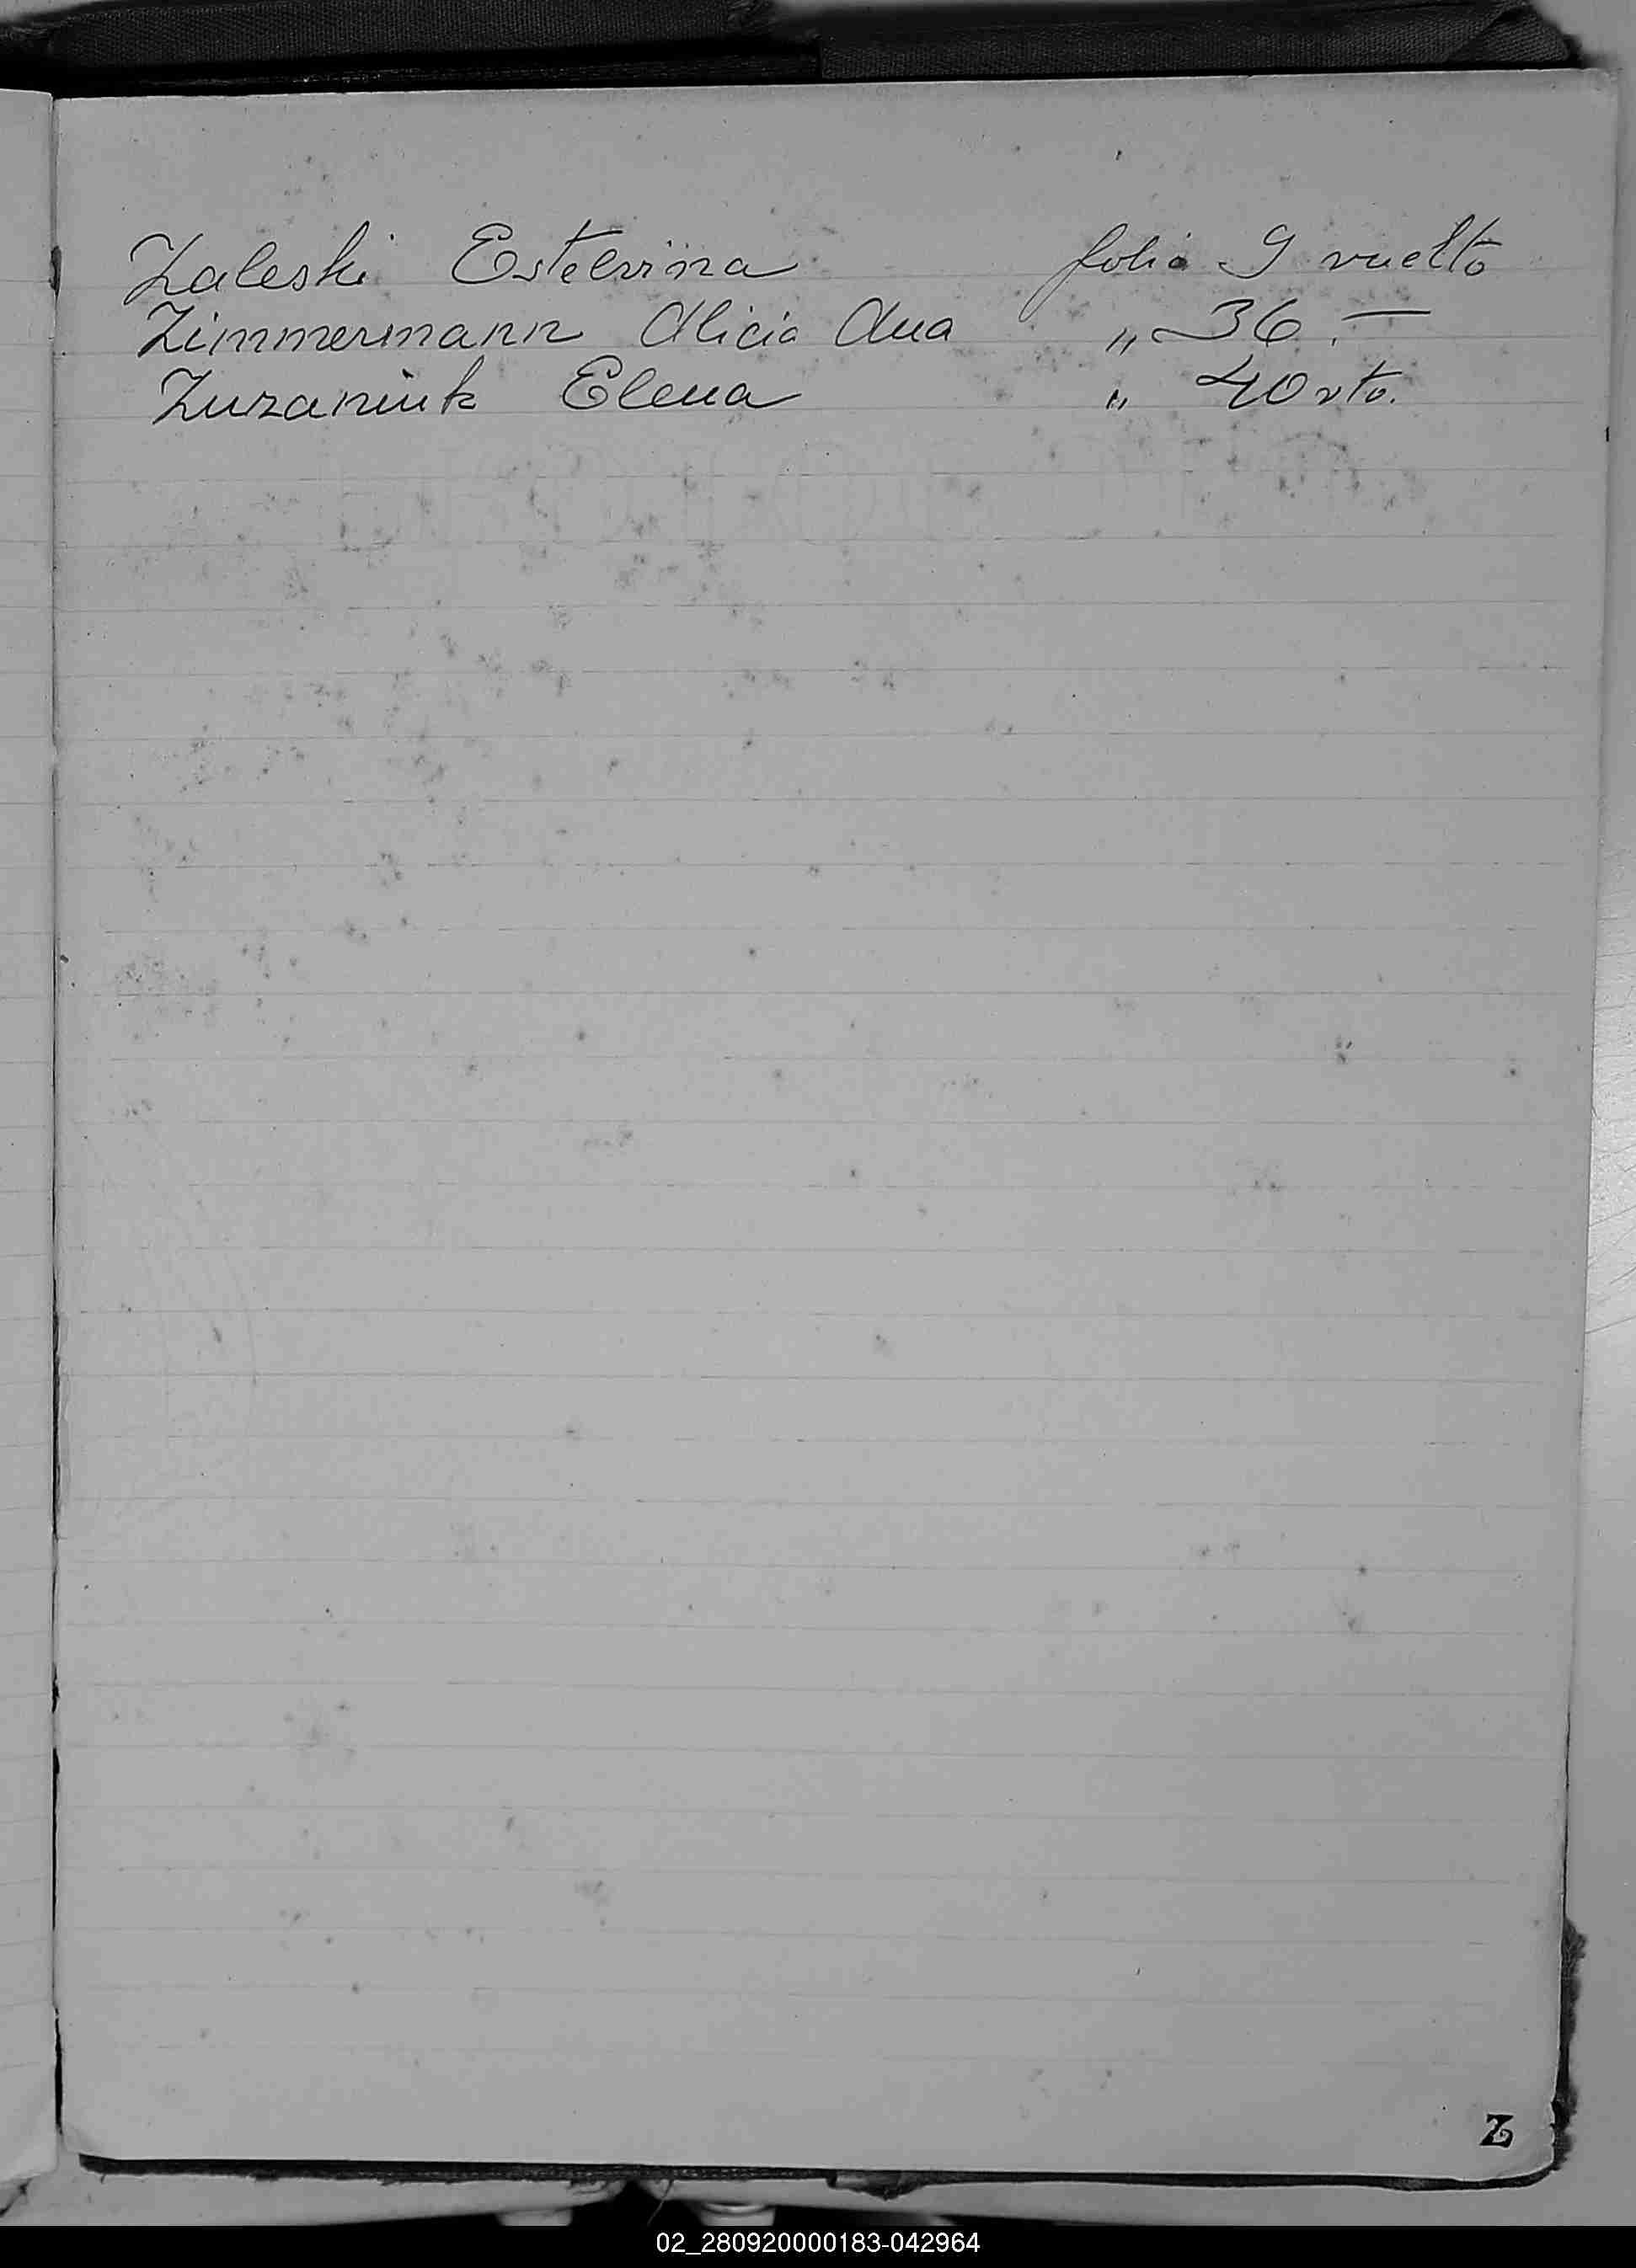 Zaleski Estelvina folio 9 vuelto
Zimmermann Alicia Ana „ 36. —
Zuzaniuk Elena „ 40 vto.
Z
02_280920000183-042964